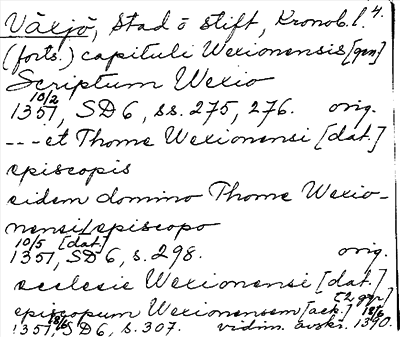 Växjö, stad o stift, Kronob. l. 4.
(forts.) capituli Wexionensis [gen]
Scriptum Wexio
10/2
1351, SD 6, ss. 275, 276. orig.
--- et Thome Wexionensi [dat.]
episcopis
eidem domino Thome Wexio-
nensi episcopo
10/5 [dat.]
1351, SD 6, s. 298. orig.
ecclesie Wexionensi [dat.]
[2 ggr]
episcopum Wexionensem [ack.] 18/6
1351 18/6, SD 6, s. 307. vidim. avskr. 1390.